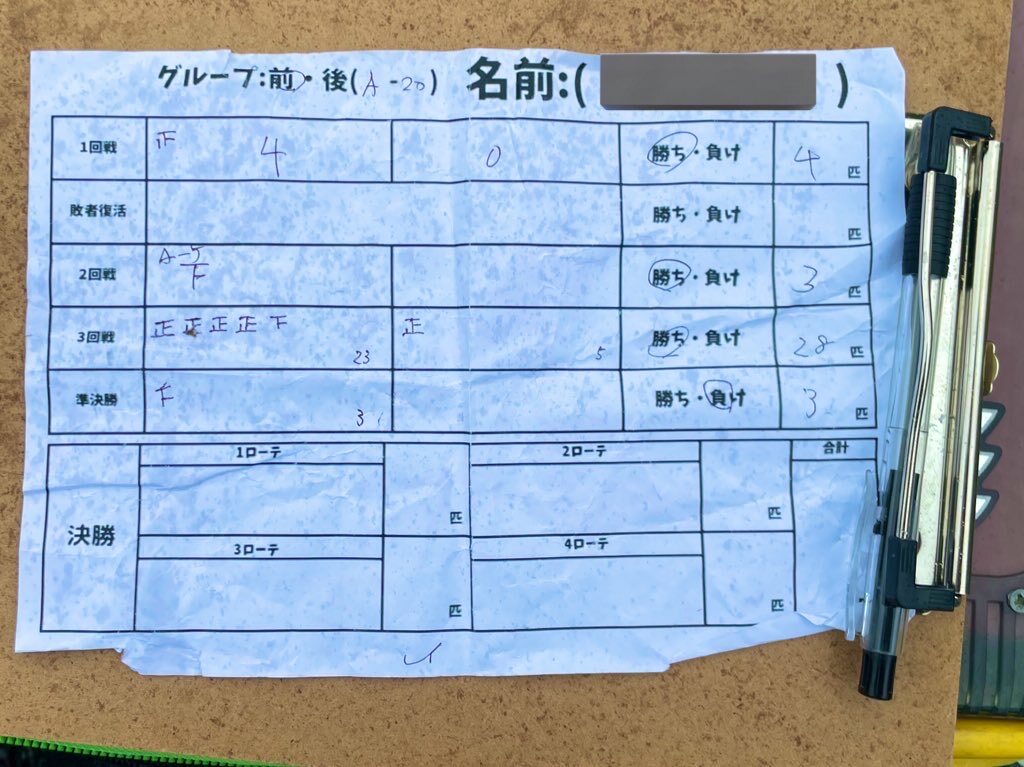 グループ:前・後(A-20) 名前:( )
1回戦 正 4 0 勝ち・負け 4 匹
敗者復活 勝ち・負け 匹
2回戦 A-5 下 勝ち・負け 3 匹
3回戦 正正正正下 23 正 5 勝ち・負け 28 匹
準決勝 下 3 勝ち・負け 3 匹
決勝
1ローテ 匹 2ローテ 匹 合計
3ローテ 匹 4ローテ 匹